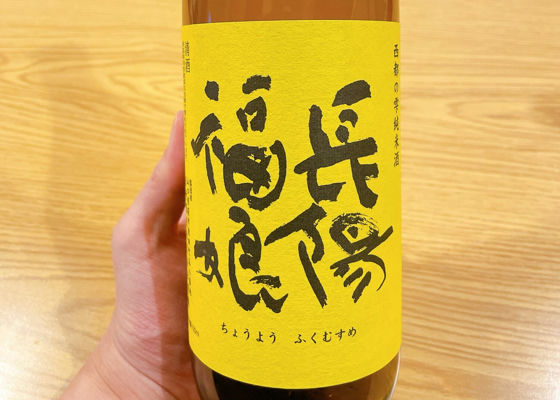 西都の雫純米酒
長陽
福娘
ちょうよう　ふくむすめ